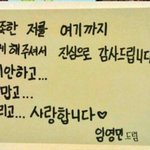 또한 저를 여기까지
게 해주셔서 진심으로 감사드립니다
안하고...
맙고...
리고... 사랑합니다♡
임영민 드림